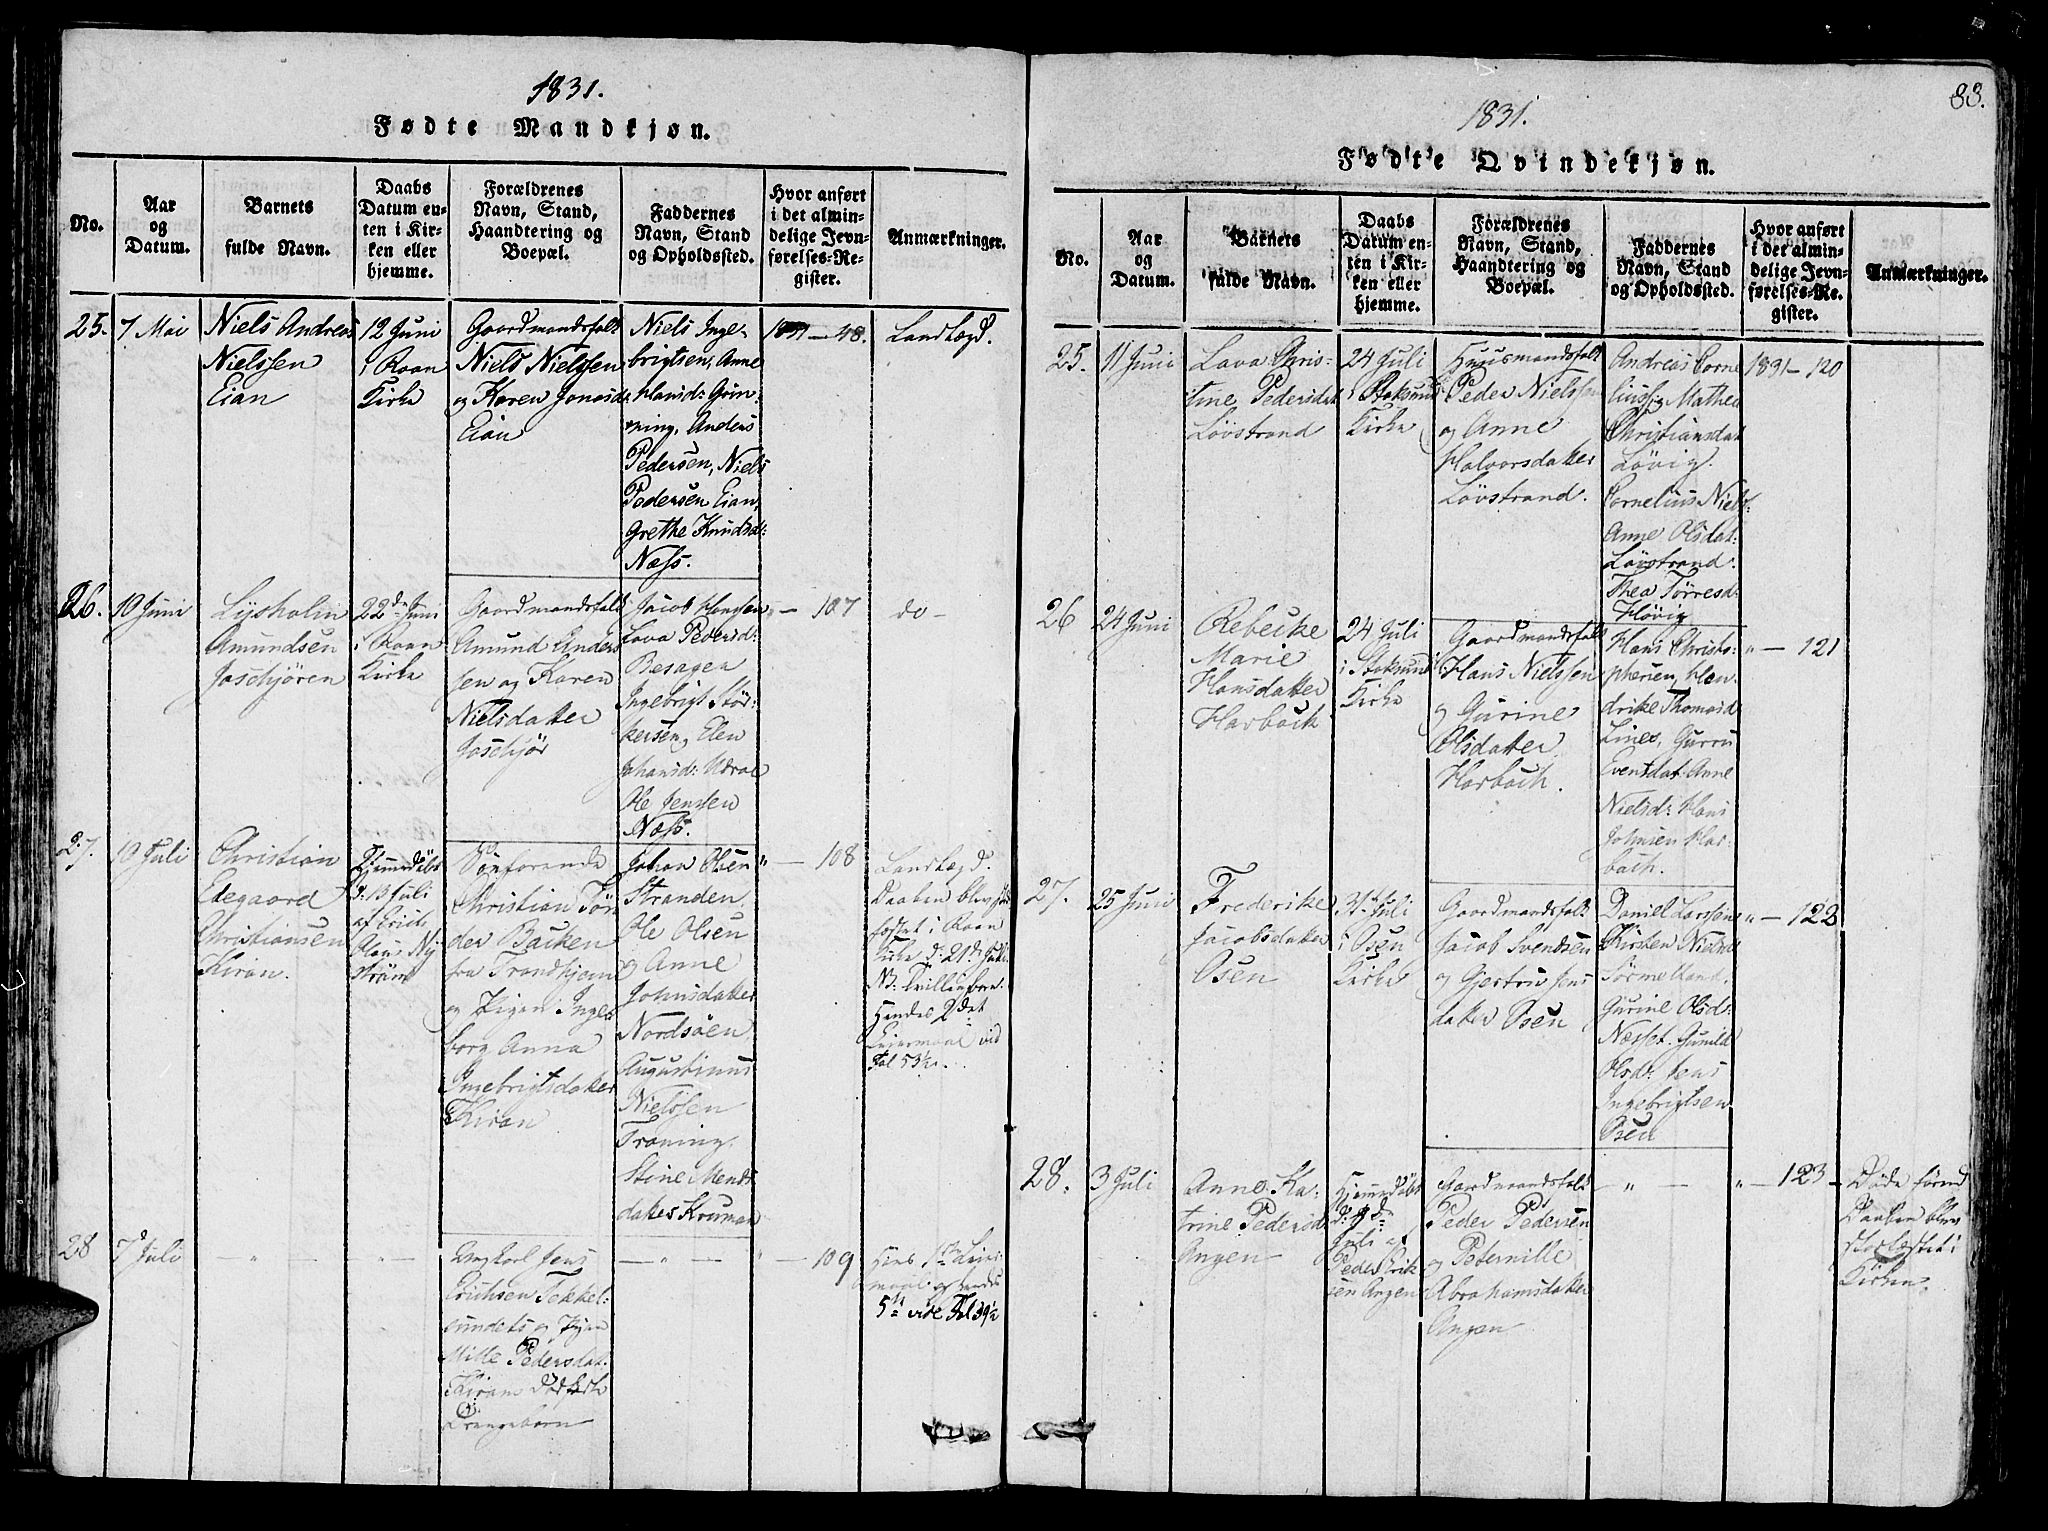 1831.
Fødte Mandkjøn.
No.
Aar
og
Datum.
Barnets
fulde Navn.
Daabs
Datum en-
ten i Kir-
ken eller
hjemme.
Forældrenes
Navn, Stand,
Haandtering og
Boepæl.
Faddernes
Navn, Stand
og Opholdssted.
Hvor anført
i det almin-
delige Jevn-
førelses-Re-
gister.
Anmærkninger.
25.
7 Mai
Niels Andreas
Nielssen
Eian
12 Juni
i Roan
Kirke
Gaardmandsfolk
Niels Nielssen
og Karen Jonasd:
Eian
Niels Inge-
brigtsen, Anne
Hansd: Grin-
ning, Anders
Pedersen, Niels
Pedersen Eian,
Grethe Knudsd:
Næss.
1831 — 48.
Landlægd.
26.
10 Juni
Lysholm
Amundsen
Joschjören
22de Juni
i Roan
Kirke
Gaardmandsfolk
Amund Anders
sen og Karen
Nielsdatter
Joschjör
Jacob Hanssen
Lava Pedersd:
Besagen
Ingebrigt Stör-
kersen, Elen
Johansd: Udroe
Ole Jenssen
Næss.
" — 107
do —
27.
10 Juli
Christian
Edegaard
Christiansen
Kiran.
Hjemmedöbt
d: 13 Juli
af
Olaus Ny
ström
Christian Tør
der Backen
fra Trondhjem
og Pigen Inge
borg Anna
Ingebrigtsdatter
Kiran
Johan Olsen
Stranden,
Ole Olsen
og Anne
Johnsdatter
Nordsöen,
Augustinus
Nielssen
Froning,
Stine Mends
datter Kruman
" — 108
Landlægd.
Daaben blev
fæstet i Roan
Kirke d: 21d Juli.
NB: Tvillingbørn.
Hendes 2det
Leiermaal vid
Fol 53½.
28
7 Juli
— " —
— " —
Ungkarl Jens
Erichsen Tokkel-
sundets og Pigen
Mille Pedersdat.
Kirans dødfødte
Drengebarn
— " —
" — 109
Hans 1ste Leier-
maal og hendes
5te vide Fol 39½
1831.
83.
Fødte Qvindekjøn.
No.
Aar
og
Datum.
Barnets
fulde Navn.
Daabs
Datum en-
ten i Kir-
ken eller
hjemme.
Forældrenes
Navn, Stand,
Haandtering og
Boepæl.
Faddernes
Navn, Stand
og Opholdssted.
Hvor anført
i det almin-
delige Jevn-
førelses-Re-
gister.
Anmærkninger.
25.
11 Juni
Lava Chris-
tine Pedersdat
Lövstrand
24 Juli
i Stoksund
Kirke
Huusmandsfolk
Peder Nielssen
og Anne
Halvorsdatter
Lövstrand.
Andreas Corne
liuss, Mathea
Christiansdat
Lövig.
Cornelius Niels:
Anne Olsdat:
Lövstrand.
Thea Törresd:
Hövig
1831 — 120
26
24 Juni
Rebecke
Marie
Hansdatter
Harbach
24 Juli
i Stoksund
Kirke
Gaardmandsfolk
Hans Nielssen
og Gurine
Olsdatter
Harbach.
Hans Christo-
phersen, Hen-
drike Thomasd
Lines, Gurru
Evensdat: Anne
Nielsd: Hans
Johnsen Har-
bach.
" — 121
27.
25 Juni
Frederike
Jacobsdatter
Osen
31te Juli
i Osen
Kirke
Gaardmandsfolk
Jacob Svendsen
og Gjertru Jens
datter Osen
Daniel Larssen
Kirsten Nielsd
Sörmeland,
Gurine Olsd:
Næsset. Gunild
Olsd: Jens
Ingebrigtsen
Osen
" — 122
28.
3 Juli
Anne Ka-
trine Pedersd
Angen
Hjemmedöbt
d:
Juli af
Peder Erik
sen Angen
Gaardmandsfolk
Peder Pedersen
og Peternille
Abrahamsdatter
Angen
— " —
" — 123
Døde förend
Daaben blev
stadfæstet i
Kirken.